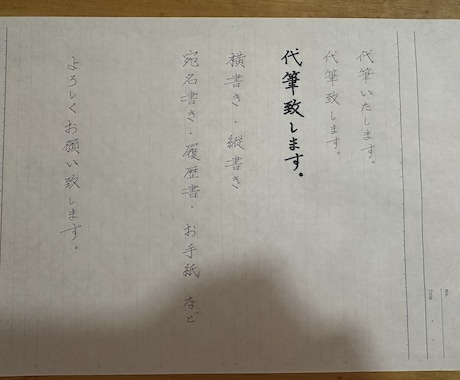 代筆いたします。
代筆致します。
代筆致します。
横書き・縦書き
宛名書き・履歴書・お手紙 など
よろしくお願い致します。
No.
Date